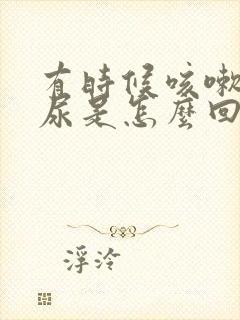 有時候咳嗽
尿是怎麼回
浮泠